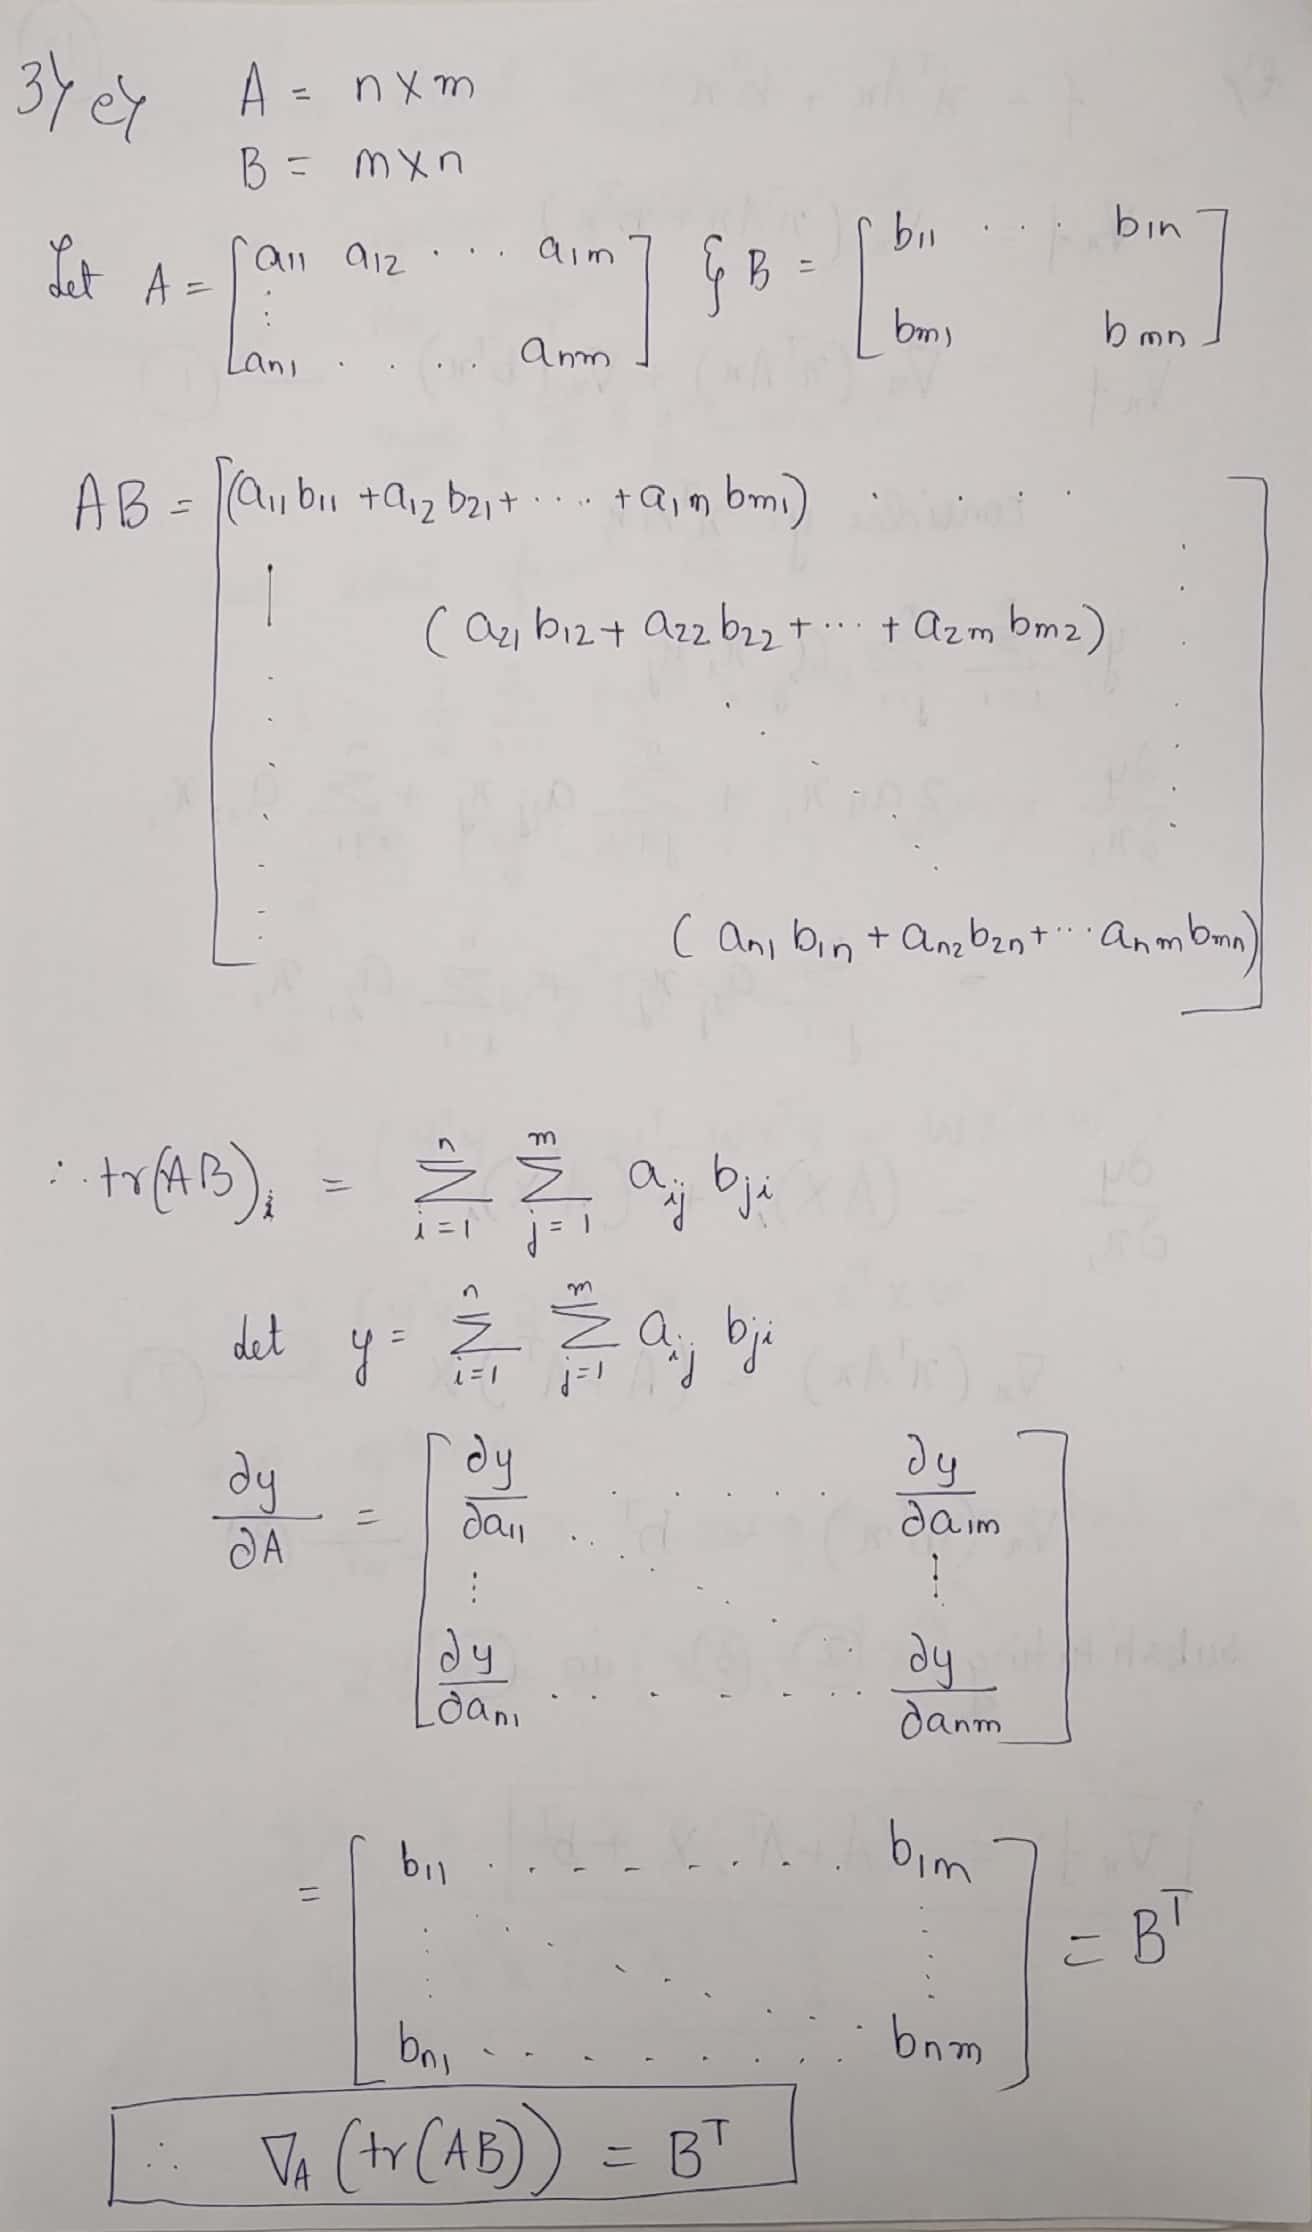 3) e) A = n×m
B = m×n
Let A = [a11 a12 ... a1m ⋮ an1 .... anm] & B = [b11 .... b1n bm1 bmn]
AB = [(a11 b11 + a12 b21 + .... + a1m bm1) ....
(a21 b12 + a22 b22 + ... + a2m bm2)
(an1 b1n + an2 b2n + ... anm bmn)]
∴ tr(AB)i = n∑i=1 m∑j=1 aij bji
Let y = n∑i=1 m∑j=1 aij bji
∂y/∂A = [∂y/∂a11 ..... ∂y/∂a1m
⋮ ⋮
∂y/∂an1 ....... ∂y/∂anm]
= [b11 ........ b1m
bn1 ......... bnm] = B^T
∴ ∇A (tr(AB)) = B^T